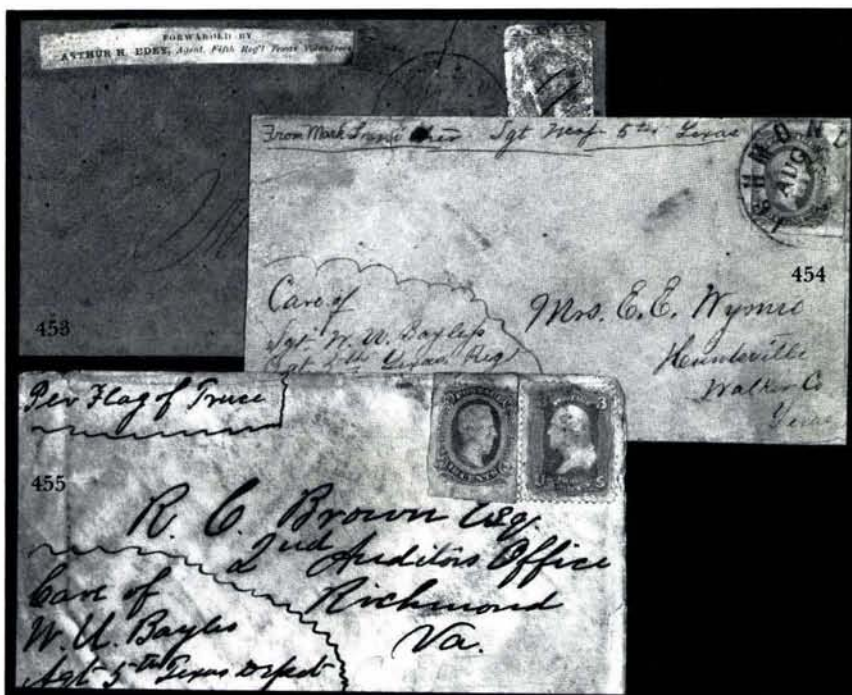 FORWARDED BY
ARTHUR H. EDEY, Agent, Fifth Reg't Texas Volunteers
453
From Mark Sgt Maj 5th Texas
AUG
454
Care of
Sgt W. U. Bayliss
5th Texas Regt
Mrs. E. E. Wynne
Huntsville
Walker Co
Texas
Per Flag of Truce
455
TEN CENTS
3
R. C. Brown Esq.
2nd Auditors Office
Richmond
Va.
Care of
W. U. Bayliss
Agt 5th Texas Depot